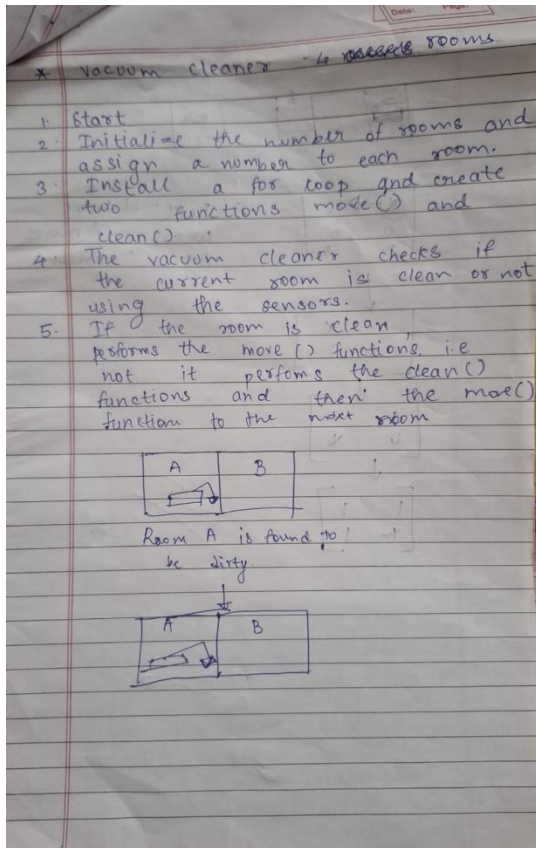 Date: Page:
* Vacuum cleaner - 4 rooms
1. Start
2. Initialize the number of rooms and
assign a number to each room.
3. Install a for loop and create
two functions move() and
clean().
4. The vacuum cleaner checks if
the current room is clean or not
using the sensors.
5. If the room is clean,
performs the move () functions, i.e
not it perfoms the clean()
functions and then the move()
function to the next room
A B
Room A is found to
be dirty.
A B